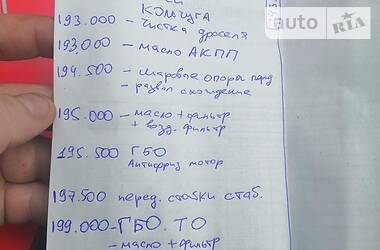 КОЛЬЧУГА
193.000 - Чистка дроселя
193.000 - масло АКПП
194.500 - шаровые опоры перд
- развал схождение
195.000 - масло + фильтр
+ возд. фильтр
195.500 ГБО
Антифриз мотор
197.500 перед. стойки стаб.
199.000 - ГБО. ТО
- масло + фильтр
auto RIA